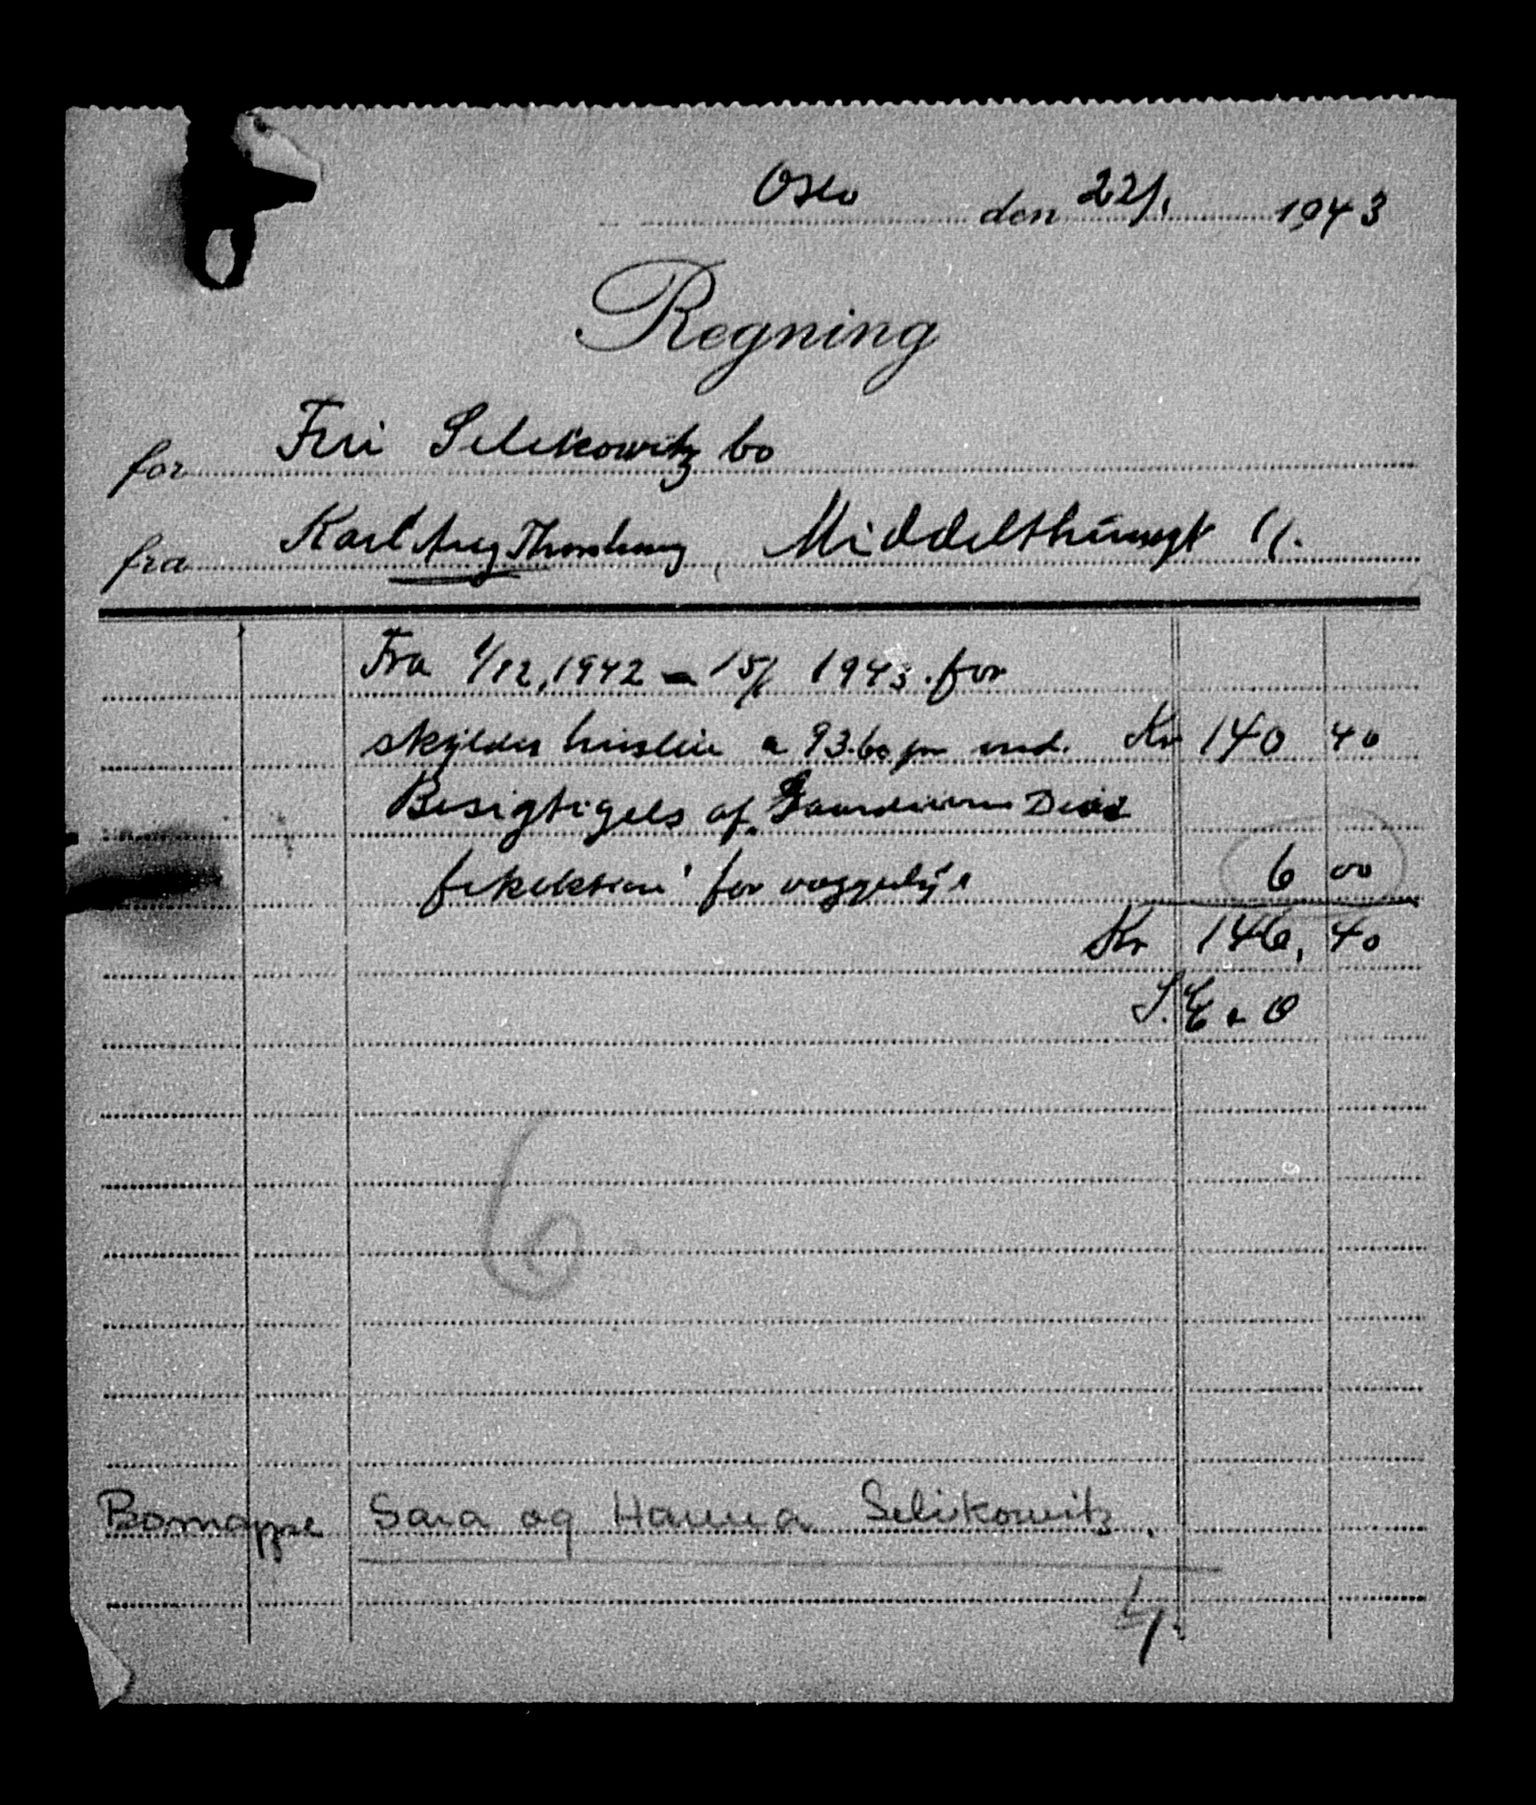 Oslo den 22/1 1943
Regning
for Fru Selikowitz bo
fra Karl Aug Middelthunsgt 11.
Fra 1/12, 1942 - 15/1 1943. for
skyldig husleie a 93.60 pr md. Kr 140 40
Besigtigels af Desi
fekektion for væggelys 6 00
Kr 146, 40
S. E & O
6
Bomappe Sara og Hanna Selikowitz.
4.